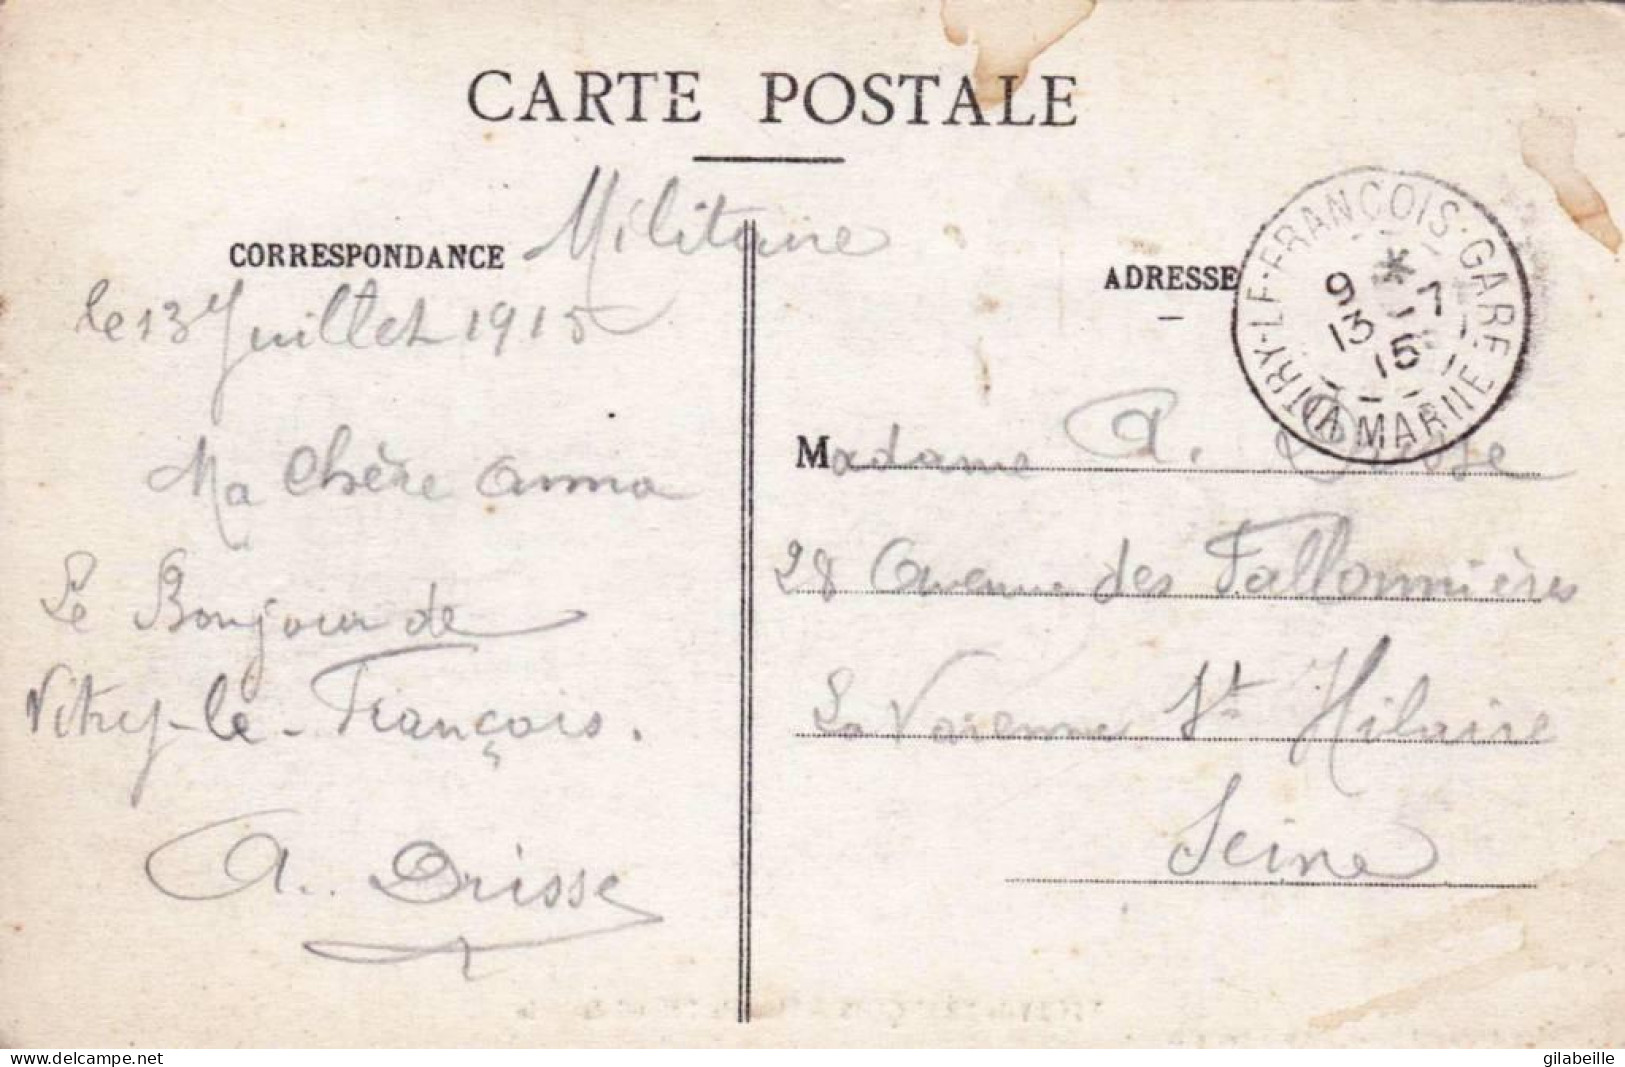 CARTE POSTALE
Militaire
CORRESPONDANCE
ADRESSE
le 13 Juillet 1915
Ma Chère Anna
Le Bonjour de
Vitry-le-François.
A. Drisse
VITRY-LE-FRANÇOIS-GARE
* 
9 - 7
13 15
MARNE
Madame A. Drisse
28 Avenue des
La Varenne St Hilaire
Seine
www.delcampe.net
gilabeille